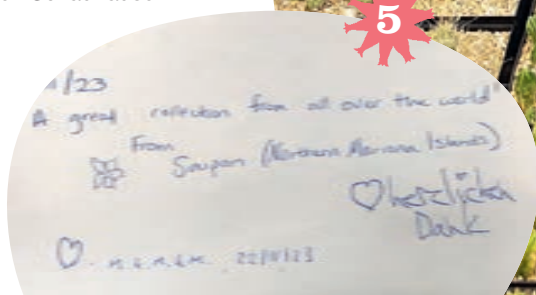 5
/23
A great collection from all over the world"
From
Saipan (Northern Mariana Islands)
♡herzlichen
Dank
♡